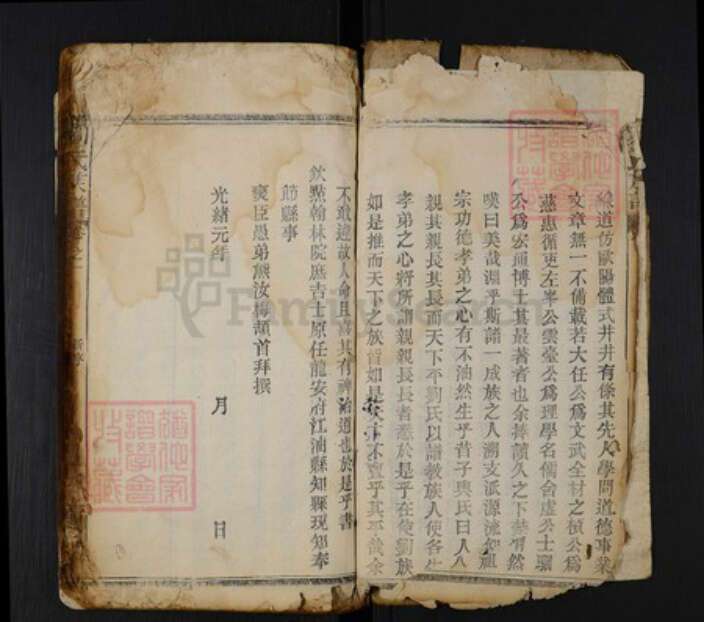 線道仿歐陽體式井井有條其先人學問道德事業
文章無一不備載若大任公為文武全材之楨公為
慈惠循吏左峯公雲臺公為理學名儒舍虛公士驤
公為宏通博士其最著者也余捧讀久之下拜
嘆曰美哉淵乎斯譜一成族之人溯支派源流知祖
宗功德孝弟之心有不油然生乎昔子輿氏曰人人
親其親長其長而天下平劉氏以譜敎族人使各生
孝弟之心將所謂親親長長者悉於是乎在使劉族
如是推而天下之族皆如是不豈乎其哉余
不敢違故人命且喜其有裨治道也於是乎書
欽點翰林院庶吉士原任龍安府江油縣知縣現知奉
節縣事
寅臣愚弟熊汝梅頓首拜撰
光緒元年 月 日
氏族譜卷之一
新序
譜學會
特藏
譜學會
特藏
FamilySearch